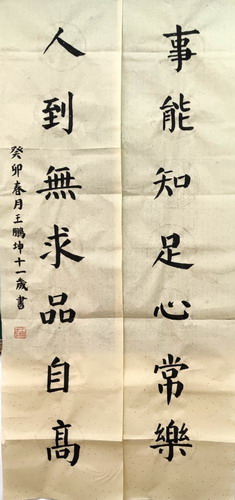 事能知足心常樂
人到無求品自高
癸卯春月王鵬坤十一歲書